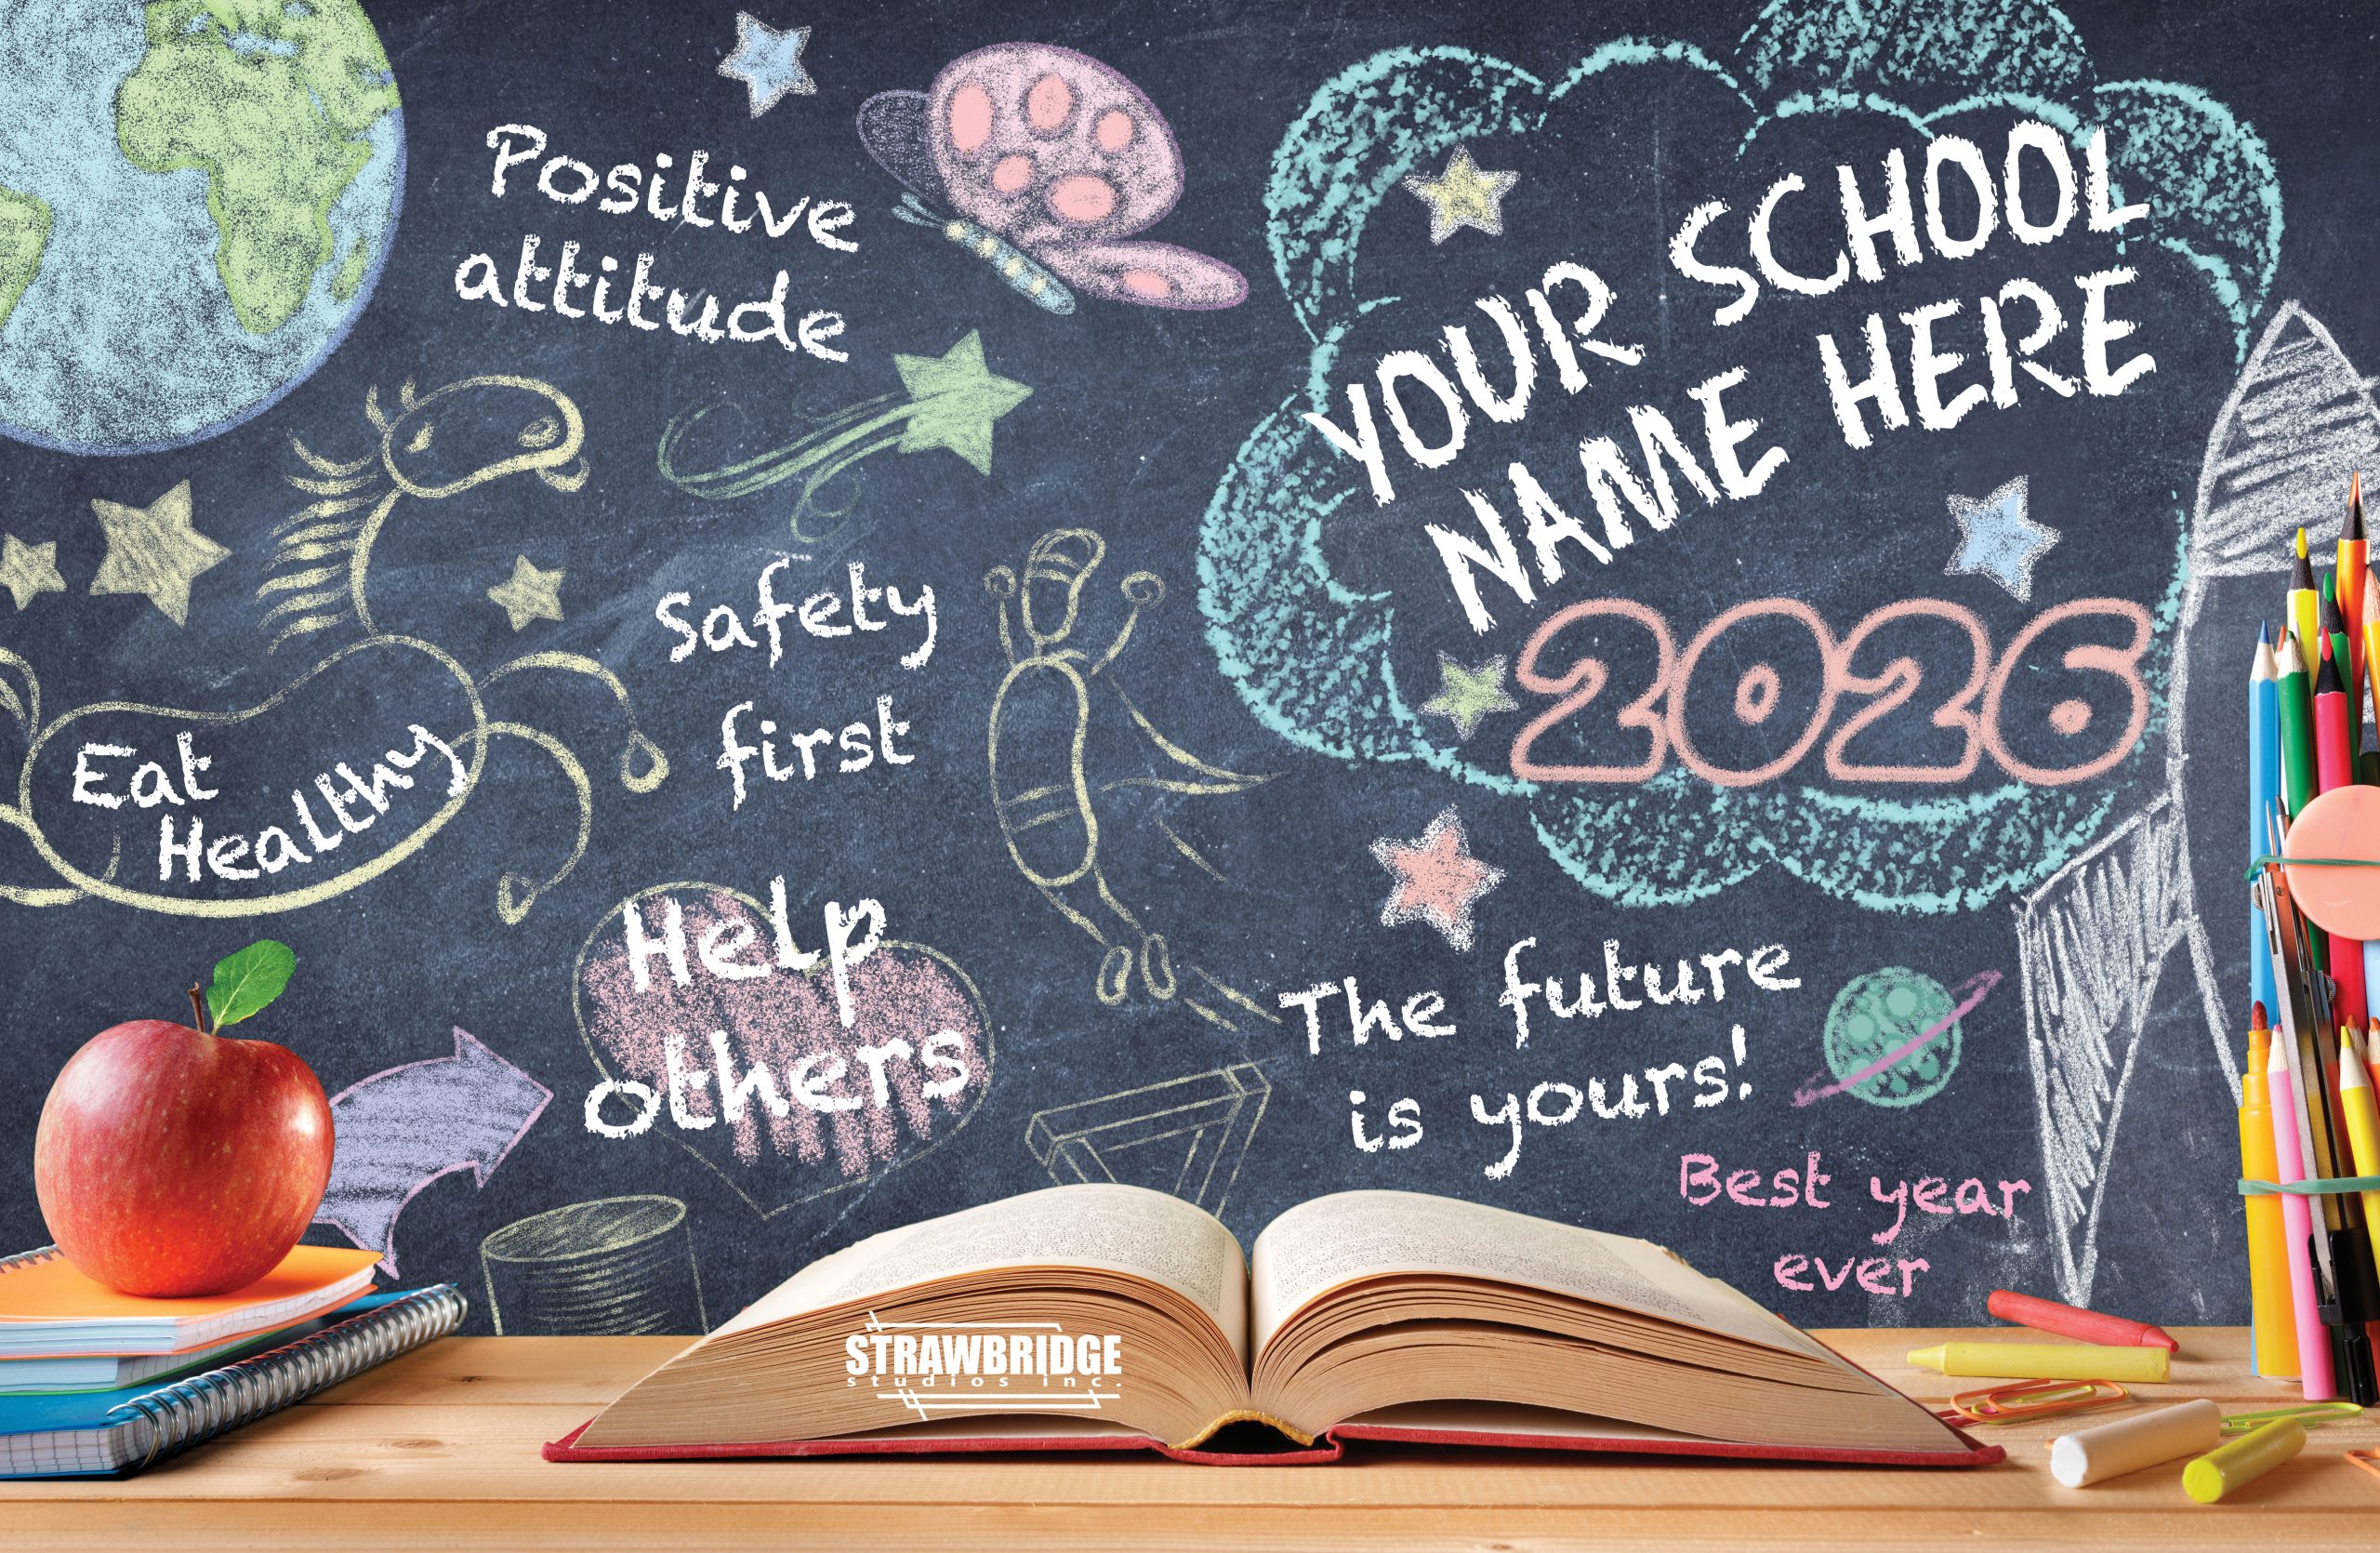 Positive
attitude
YOUR SCHOOL
NAME HERE
2026
Safety
first
Eat
Healthy
Help
others
The future
is yours!
Best year
ever
STRAWBRIDGE
studios inc.